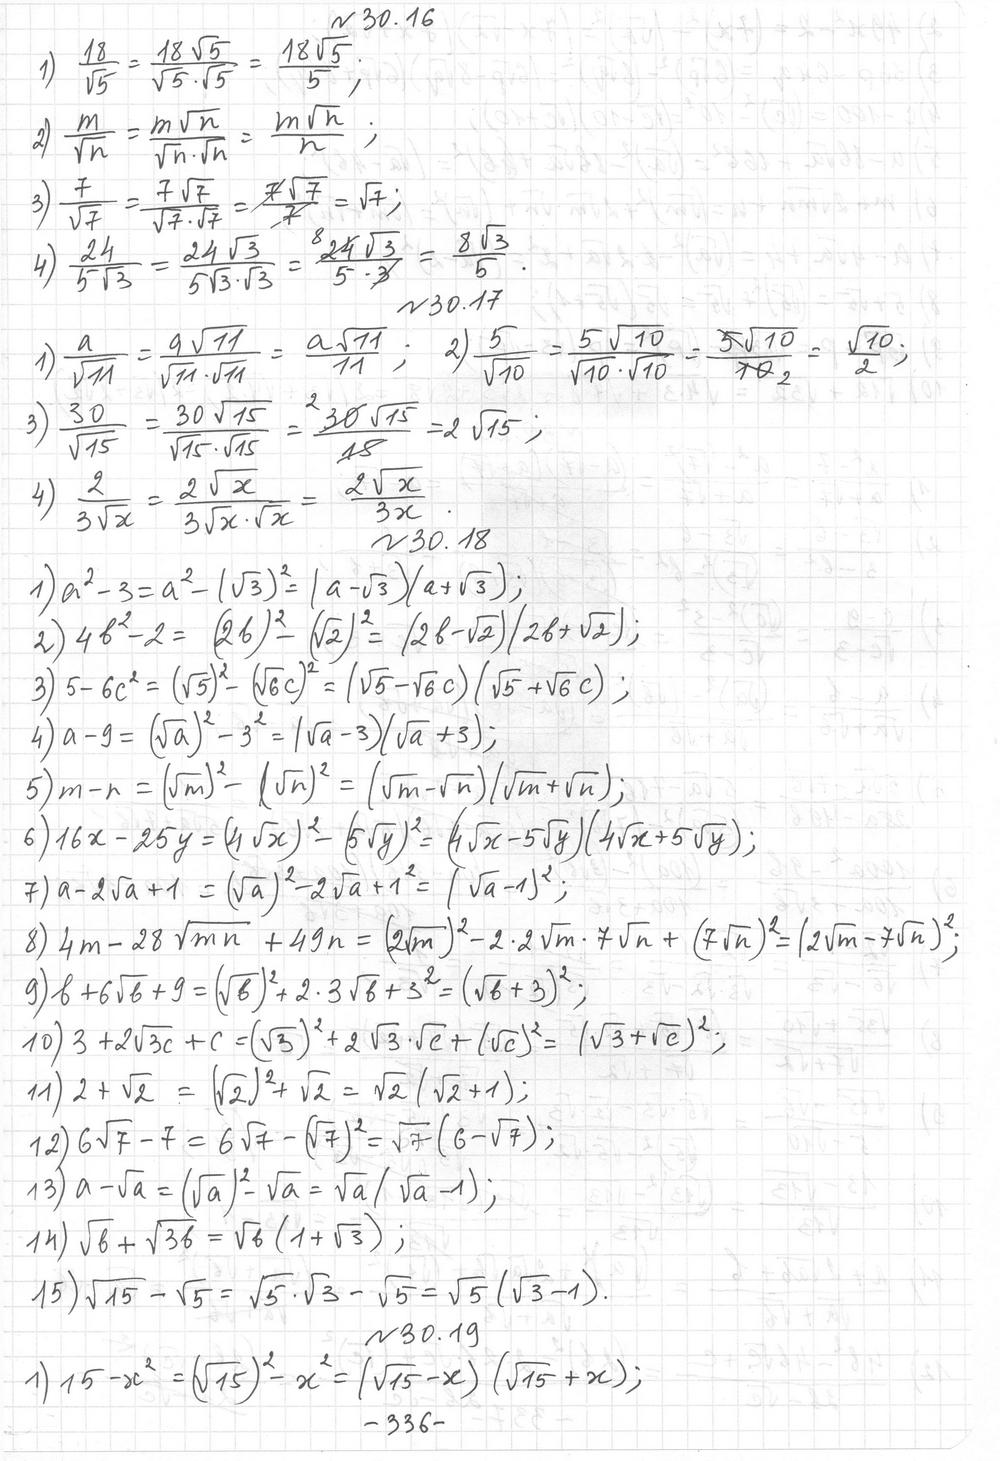 №30.16
1) 18/√5 = 18√5/√5·√5 = 18√5/5;
2) m/√n = m√n/√n·√n = m√n/n;
3) 7/√7 = 7√7/√7·√7 = 7√7/7 = √7;
4) 24/5√3 = 24√3/5√3·√3 = 8 24√3/5·3 = 8√3/5.
№30.17
1) a/√11 = a√11/√11·√11 = a√11/11; 2) 5/√10 = 5√10/√10·√10 = 5√10/10 2 = √10/2;
3) 30/√15 = 30√15/√15·√15 = 2 30√15/15 = 2√15;
4) 2/3√x = 2√x/3√x·√x = 2√x/3x.
№30.18
1) a²-3 = a²-(√3)² = (a-√3)(a+√3);
2) 4b²-2 = (2b)²-(√2)² = (2b-√2)(2b+√2);
3) 5-6c² = (√5)²-(√6c)² = (√5-√6c)(√5+√6c);
4) a-9 = (√a)²-3² = (√a-3)(√a+3);
5) m-n = (√m)²-(√n)² = (√m-√n)(√m+√n);
6) 16x-25y = (4√x)²-(5√y)² = (4√x-5√y)(4√x+5√y);
7) a-2√a+1 = (√a)²-2√a+1² = (√a-1)²;
8) 4m-28√mn+49n = (2√m)²-2·2√m·7√n+(7√n)² = (2√m-7√n)²;
9) b+6√b+9 = (√b)²+2·3√b+3² = (√b+3)²;
10) 3+2√3c+c = (√3)²+2√3·√c+(√c)² = (√3+√c)²;
11) 2+√2 = (√2)²+√2 = √2(√2+1);
12) 6√7-7 = 6√7-(√7)² = √7(6-√7);
13) a-√a = (√a)²-√a = √a(√a-1);
14) √b+√3b = √b(1+√3);
15) √15-√5 = √5·√3-√5 = √5(√3-1).
№30.19
1) 15-x² = (√15)²-x² = (√15-x)(√15+x);
-336-